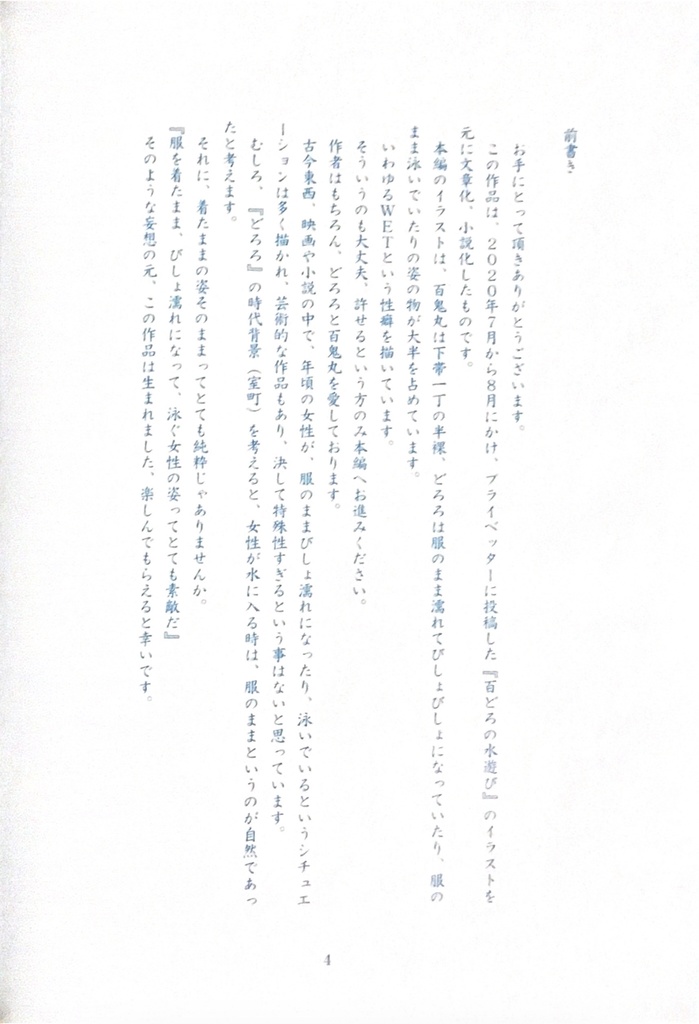 前書き
お手にとって頂きありがとうございます。
この作品は、2020年7月から8月にかけ、プライベッターに投稿した『百どろの水遊び』のイラストを
元に文章化、小説化したものです。
本編のイラストは、百鬼丸は下帯一丁の半裸、どろろは服のまま濡れてびしょびしょになっていたり、服の
まま泳いでいたりの姿の物が大半を占めています。
いわゆるWETという性癖を描いています。
そういうのも大丈夫、許せるという方のみ本編へお進みください。
作者はもちろん、どろろと百鬼丸を愛しております。
古今東西、映画や小説の中で、年頃の女性が、服のままびしょ濡れになったり、泳いでいるというシチュエ
ーションは多く描かれ、芸術的な作品もあり、決して特殊性すぎるという事はないと思っています。
むしろ、『どろろ』の時代背景（室町）を考えると、女性が水に入る時は、服のままというのが自然であっ
たと考えます。
それに、着たままの姿そのままってとても純粋じゃありませんか。
『服を着たまま、びしょ濡れになって、泳ぐ女性の姿ってとても素敵だ』
そのような妄想の元、この作品は生まれました、楽しんでもらえると幸いです。
4